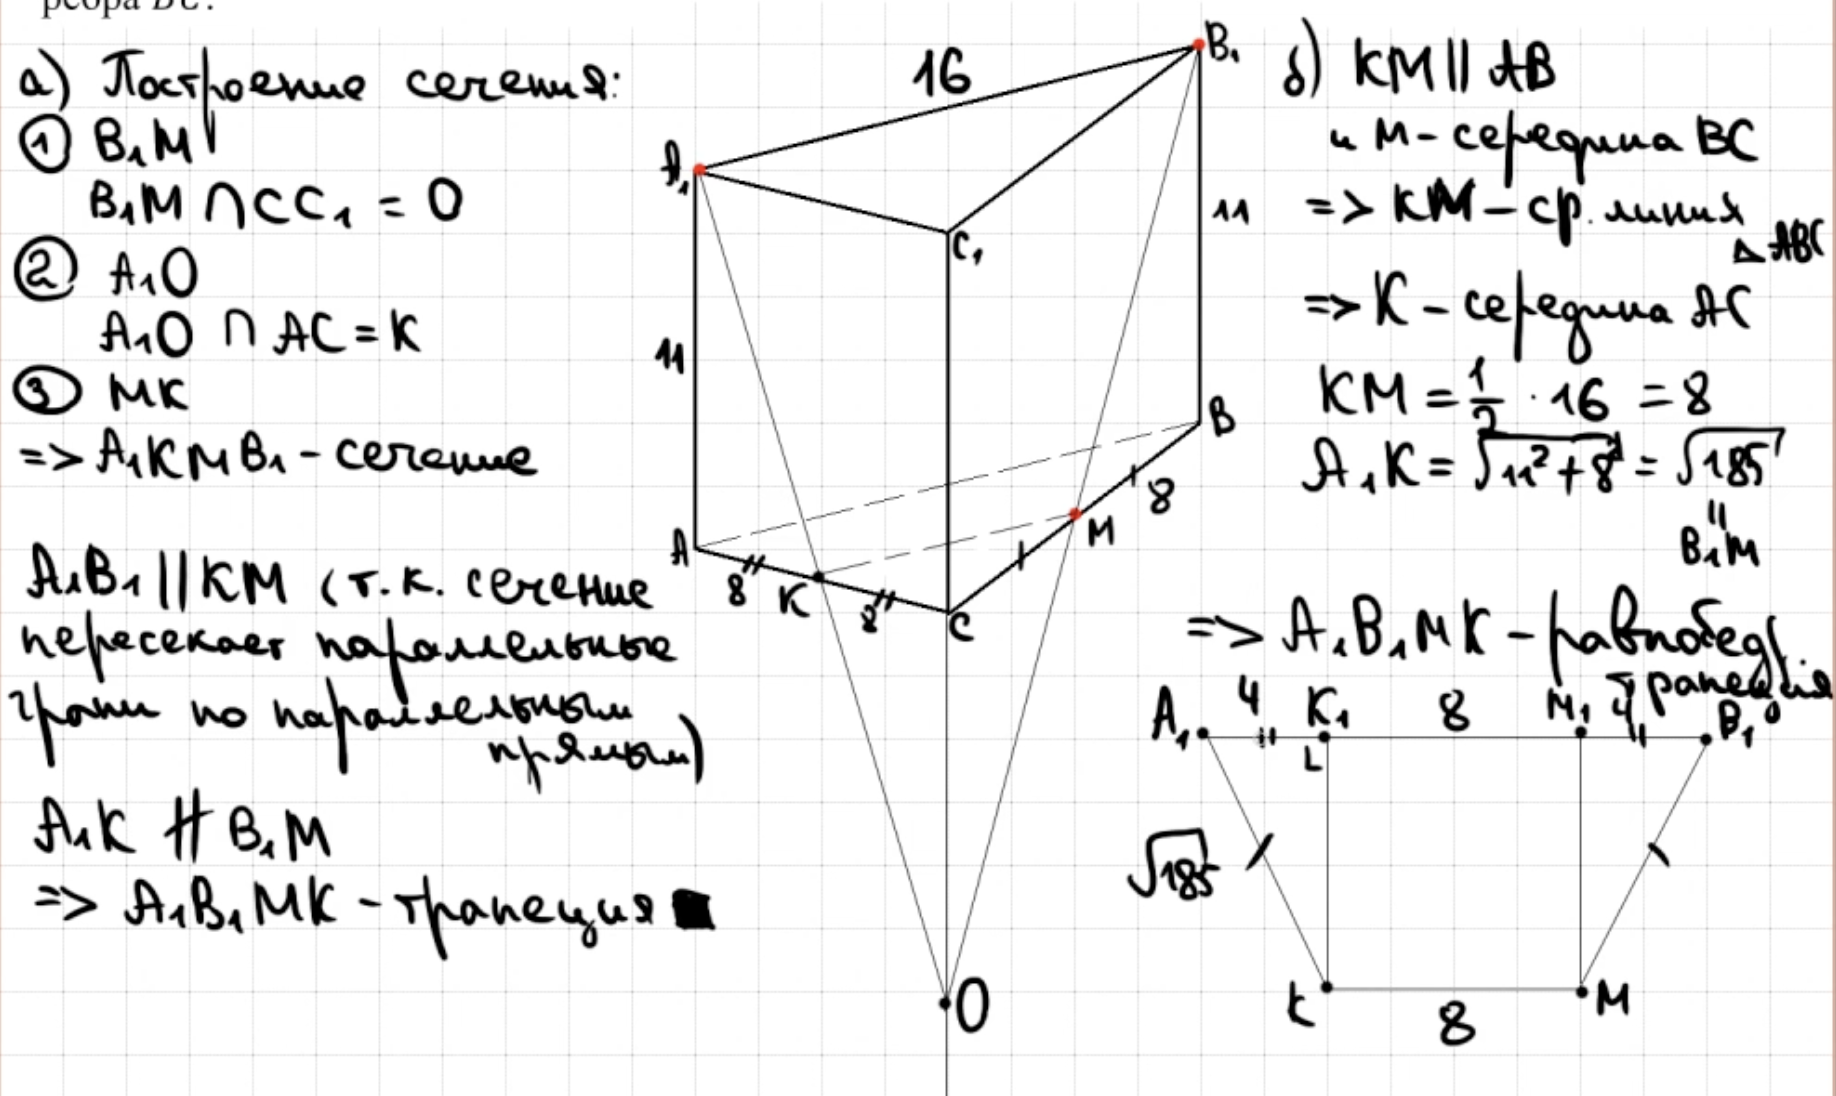 ребра BC.
а) Построение сечения:
① B₁M
B₁M ∩ CC₁ = O
② A₁O
A₁O ∩ AC = K
③ MK
=> A₁KMB₁ - сечение
A₁B₁ || KM (т.к. сечение
пересекает параллельные
грани по параллельным
прямым)
A₁K ∦ B₁M
=> A₁B₁MK - трапеция ■
16
B₁
A₁
C₁
11
11
B
A
8
M
8
K
8
C
O
б) KM || AB
и M - середина BC
=> KM - ср. линия
△ABC
=> K - середина AC
KM = 1/2 · 16 = 8
A₁K = √(11² + 8²) = √185
||
B₁M
=> A₁B₁MK - равнобед
трапеция
A₁ 4 K₁ 8 M₁ 4 B₁
L
√185
K 8 M